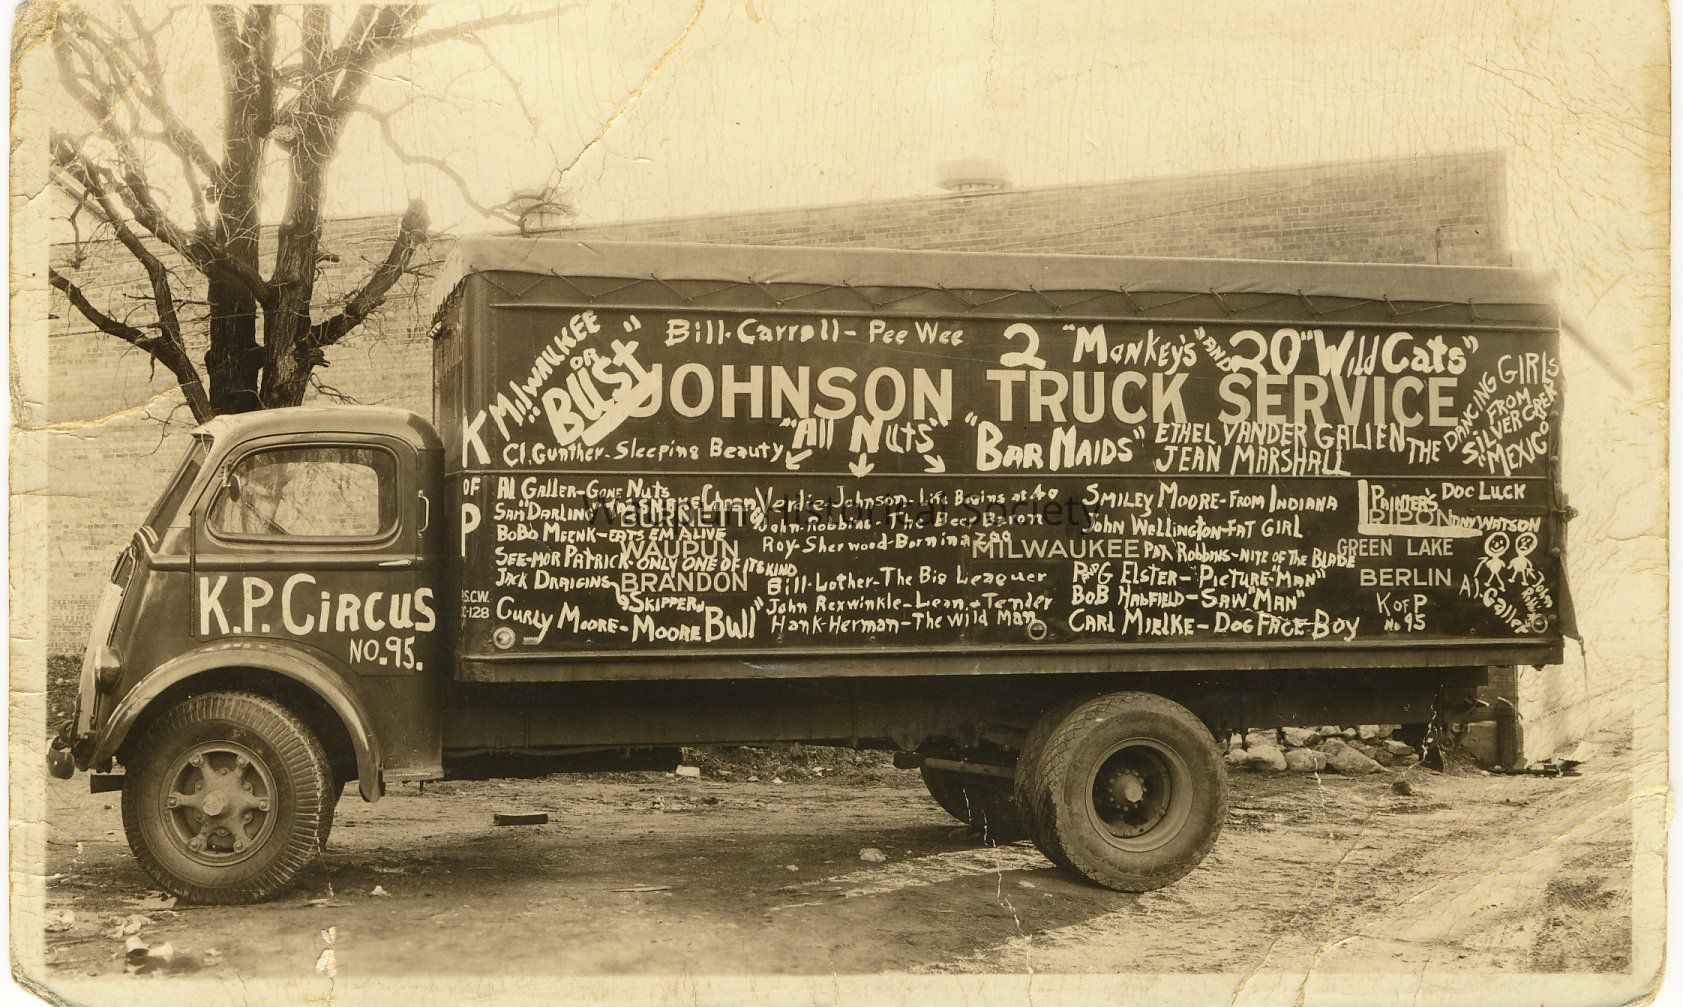 Bill-Carroll-Pee Wee
2 "Monkey's" AND 20 "Wild Cats"
MilWAUKEE
OR
"BUST"
JOHNSON TRUCK SERVICE
THE DANCING GIRLS
FROM
SILVER CREEK
MEXICO
K
OF
P
Cl. Gunther-Sleeping Beauty
"All Nuts"
"BAR MAIDS"
ETHEL VANDER GALIEN
JEAN MARSHALL
Al GALLER-GONE NUTS
SAM "DARLING"
BOBO MEENK-EATS EM ALIVE
WAUPUN
SEE-MOR PATRICK-ONLY ONE OF ITS KIND
JACK
BRANDON
"SKIPPER"
CURLY MOORE-MOORE Bull"
P.S.C.W.
LC-128
Verdie Johnson-Life Begins at 40
John-Robbins-The Beer Baron
Roy-Sherwood-Borning
MILWAUKEE
Bill-Luther-The Big Leaguer
John Rexwinkle-Lean-Tender
Hank-Herman-The Wild Man
SMILEY MOORE-FROM INDIANA
JOHN WELLINGTON-FAT GIRL
PAT ROBBINS-NITE OF THE BLADE
ELSTER-"PICTURE-MAN"
BOB HADFIELD-SAW"MAN"
CARL MIELKE-DOG FACE BOY
PAINTER'S DOC LUCK
RIPON
WATSON
GREEN LAKE
BERLIN
K OF P
No 95
Al-Galler
K.P. CIRCUS
NO. 95.
Waupun Historical Society